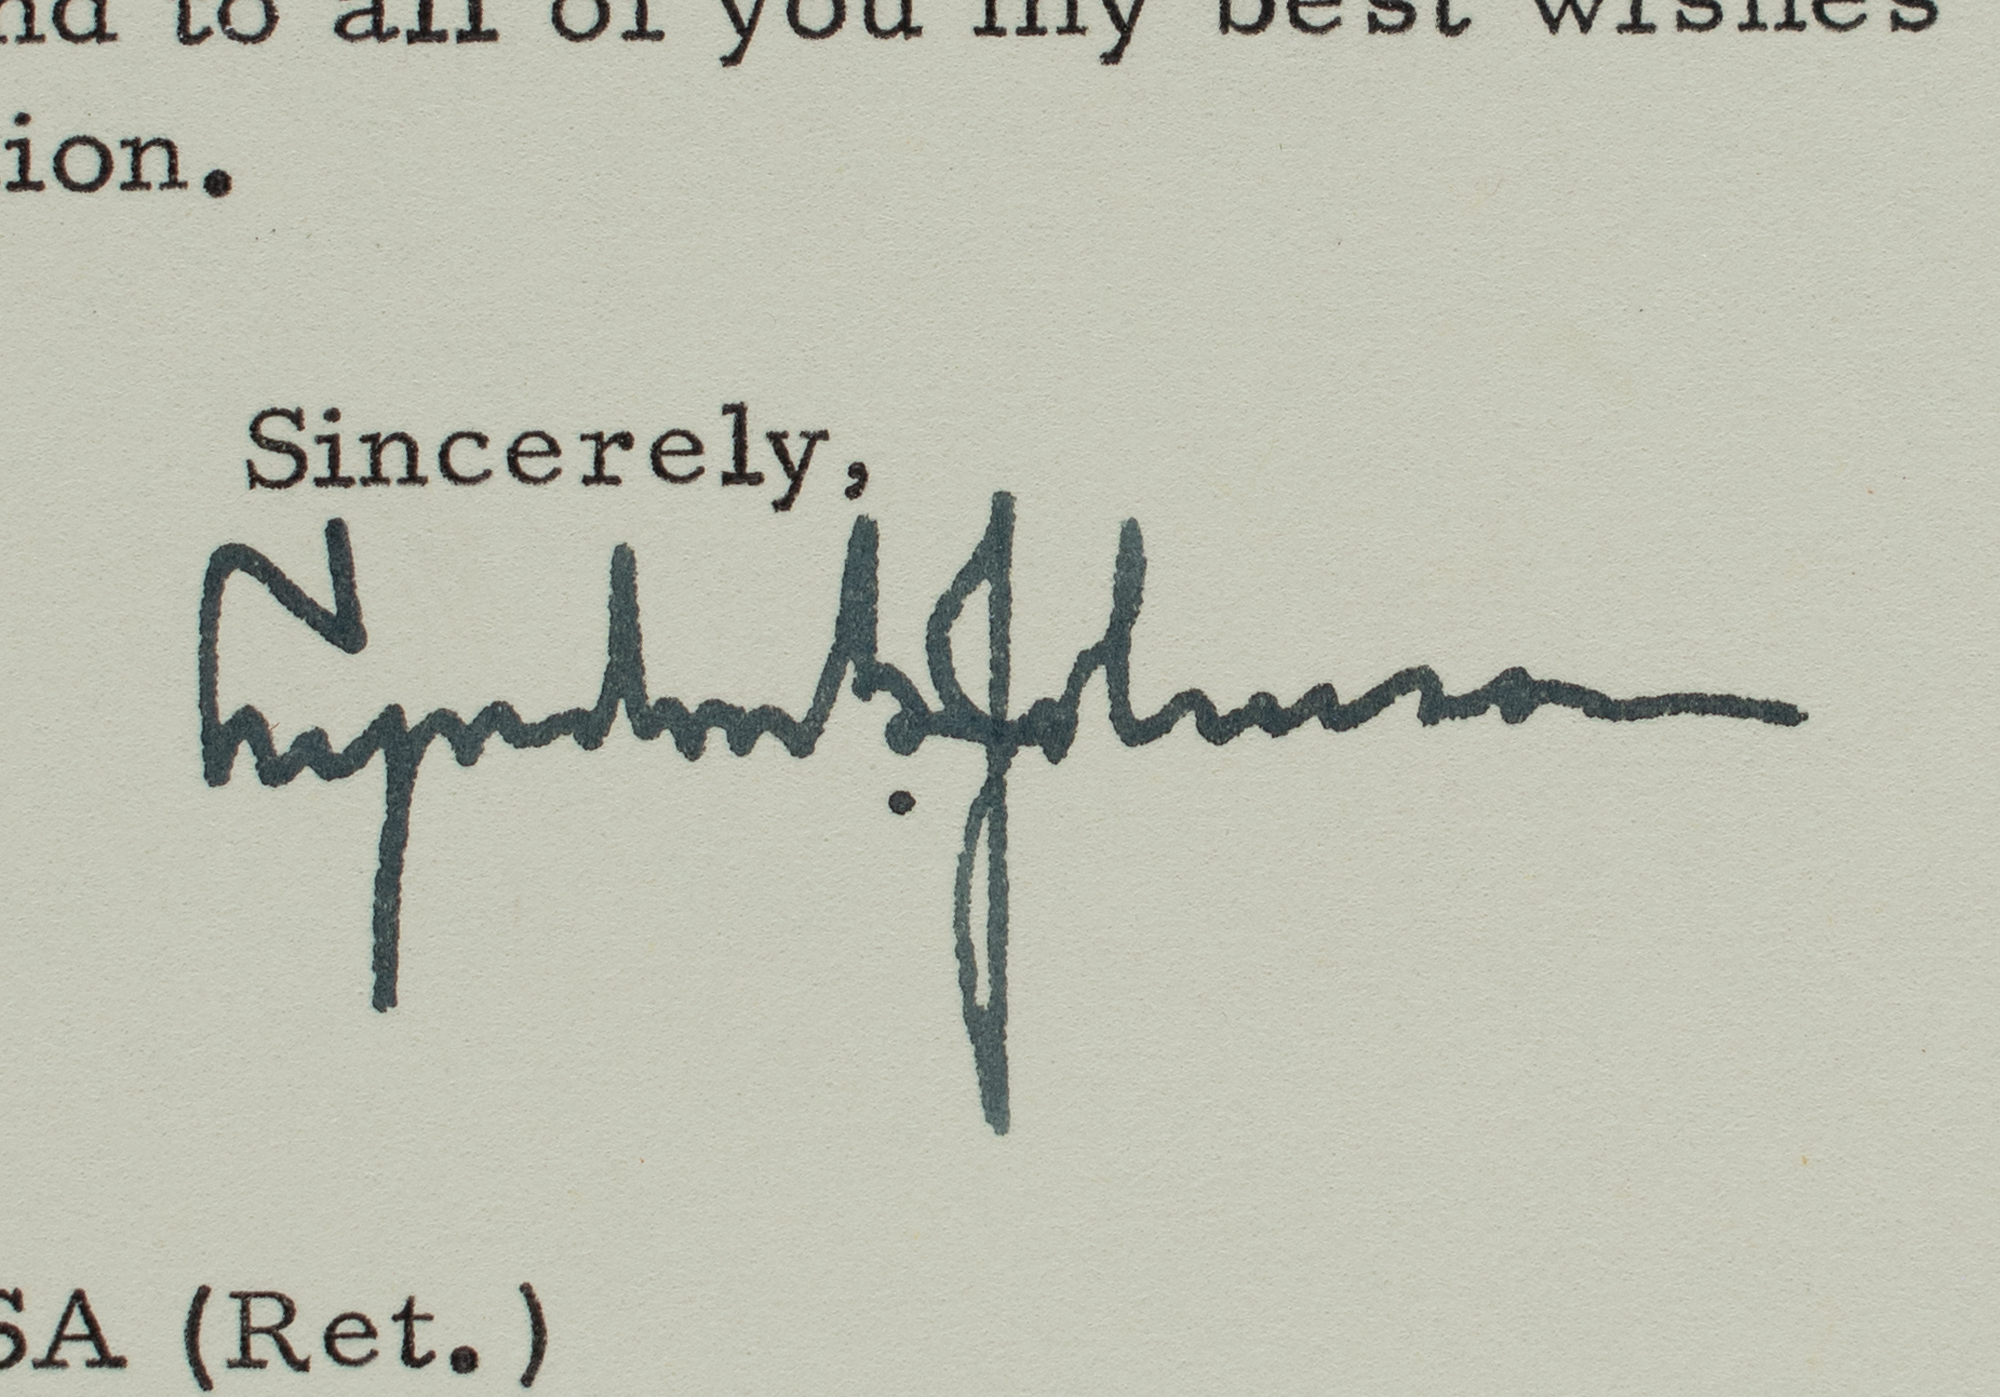 nd to all of you my best wishes
ion.
Sincerely,
Lyndon B. Johnson
SA (Ret.)